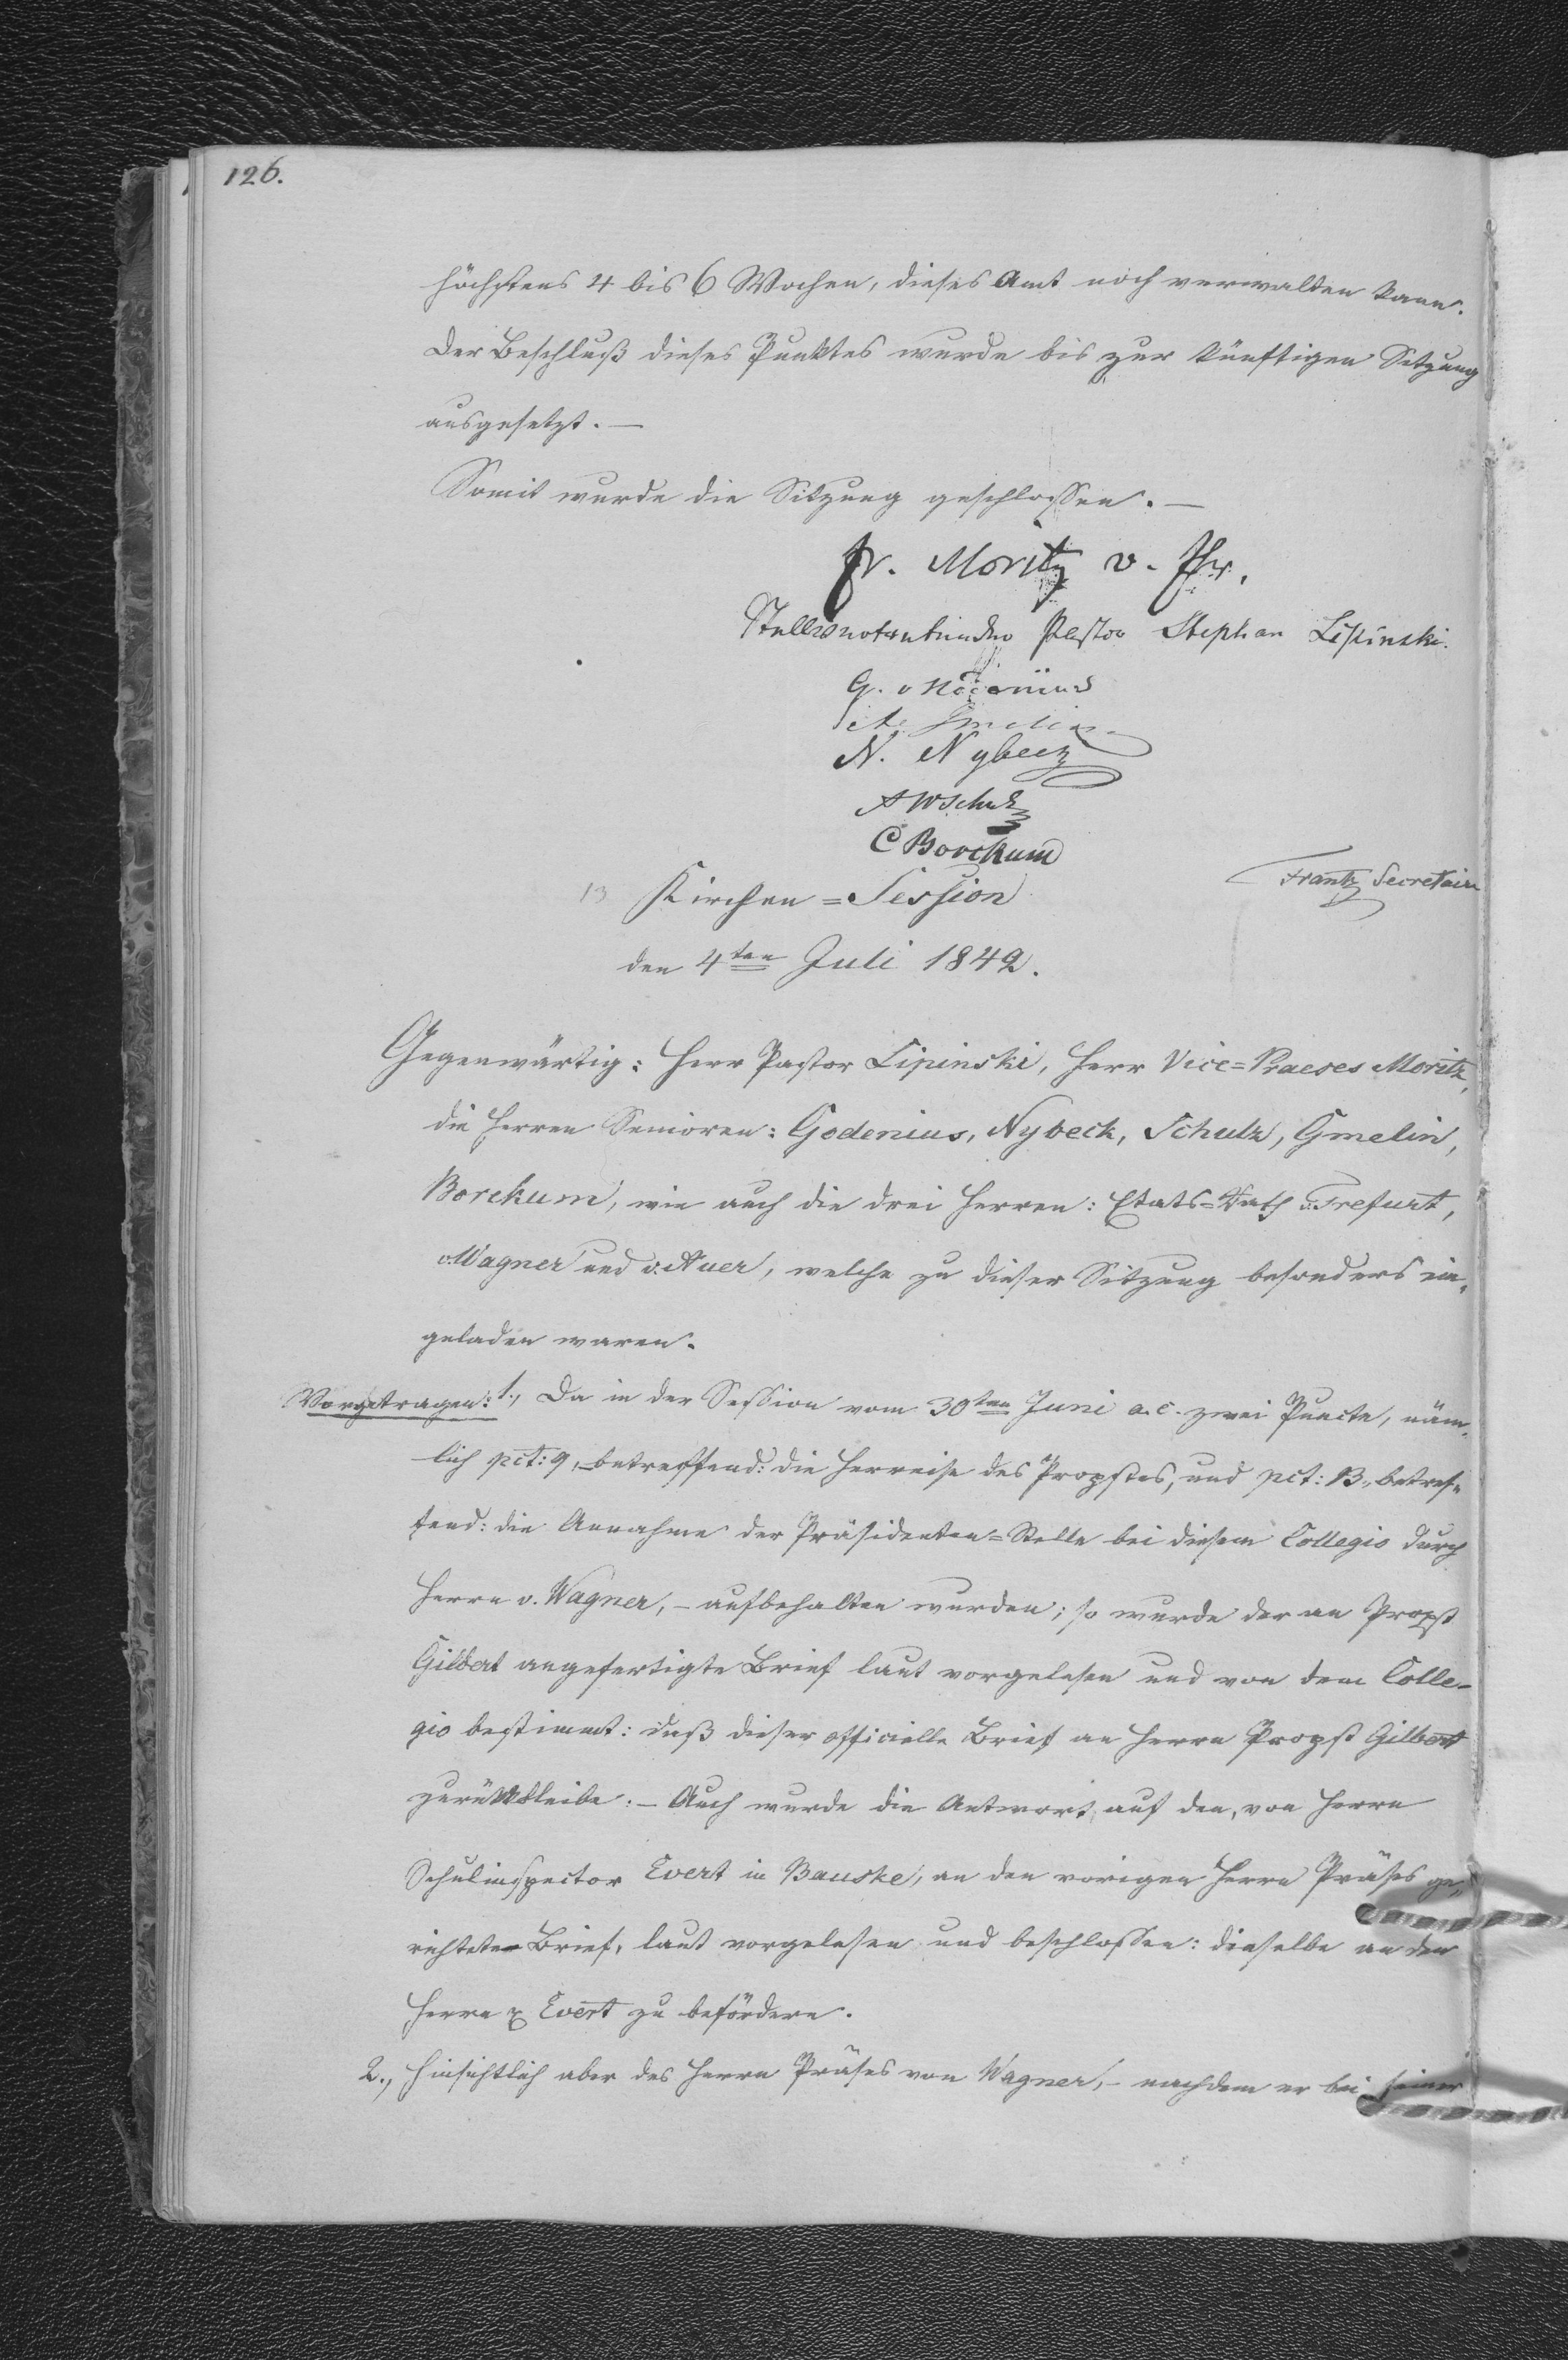 126.
höchstens 4 bis 6 Wochen, dieses Amt noch verwalten kann.
Der Beschluß dieses Punktes wurde bis zur künftigen Sitzung
ausgesetzt. —
Somit wurde die Sitzung geschlossen. —
Fr. Moritz v.
Stellvertretender Pastor Stephan Lipinski.
G.
A. Gmelin
N. Nybeck
A W Schulz
C Borckum
Frantz Secretair
13 Kirchen=Session
den 4ten Juli 1842.
Gegenwärtig: Herr Pastor Lipinski, Herr Vice=Praeses Moritz,
die Herren Senioren: Godenius, Nybeck, Schulz, Gmelin,
Borckum, wie auch die drei Herren: Etats=Rath v. Trefurt,
v. Wagner und v. Auer, welche zu dieser Sitzung besonders ein-
geladen waren.
Vorgetragen: 1., Da in der Session vom 30ten Juni a. c. zwei Puncte, näm-
lich pct: 9, betreffend: die Herreise des Propstes, und pct: 13., betref-
fend: die Annahme der Präsidenten=Stelle bei diesem Collegio durch
Herrn v. Wagner, – aufbehalten wurden; so wurde der an Propst
Gilbert angefertigte Brief laut vorgelesen und von dem Colle-
gio bestimmt: daß dieser officielle Brief an Herrn Propst Gilbert
zurükbleibe. – Auch wurde die Antwort, auf den, von Herrn
Schulinspector Evert in Bauske, an den vorigen Herrn Präses ge-
richteten Brief, laut vorgelesen und beschlossen: dieselbe an den
Herrn Evert zu befördern.
2., Hinsichtlich aber des Herrn Präses von Wagner, – nachdem er bei seiner